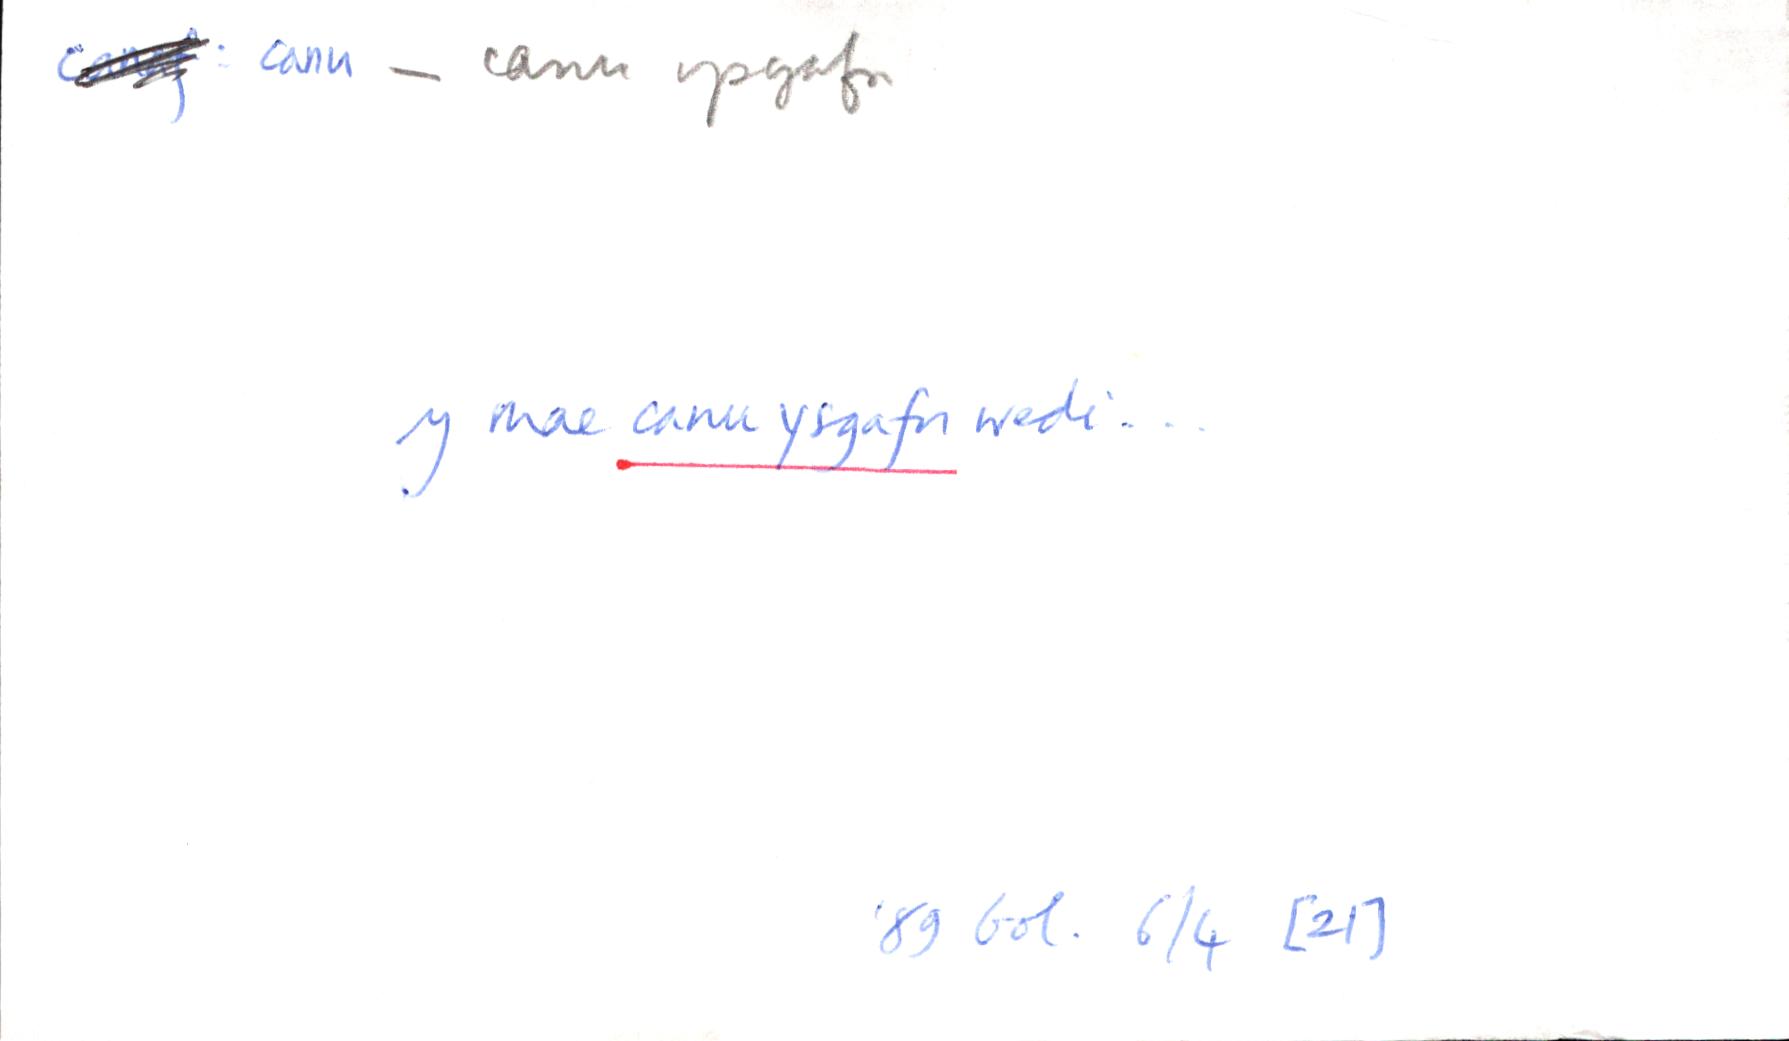 : canu – canu ysgafn
y mae canu ysgafn wedi...
'89 Gol. 6/4 [21]